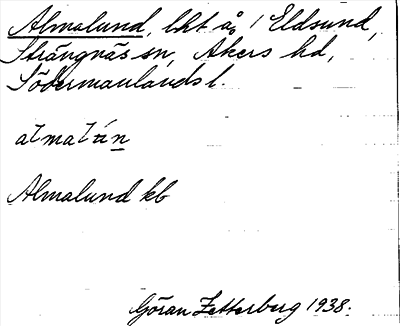 Almalund, lht å, i Eldsund,
Strängnäs sn, Åkers hd,
Södermanlands l.
Almalund kb
Göran Zetterberg 1938.